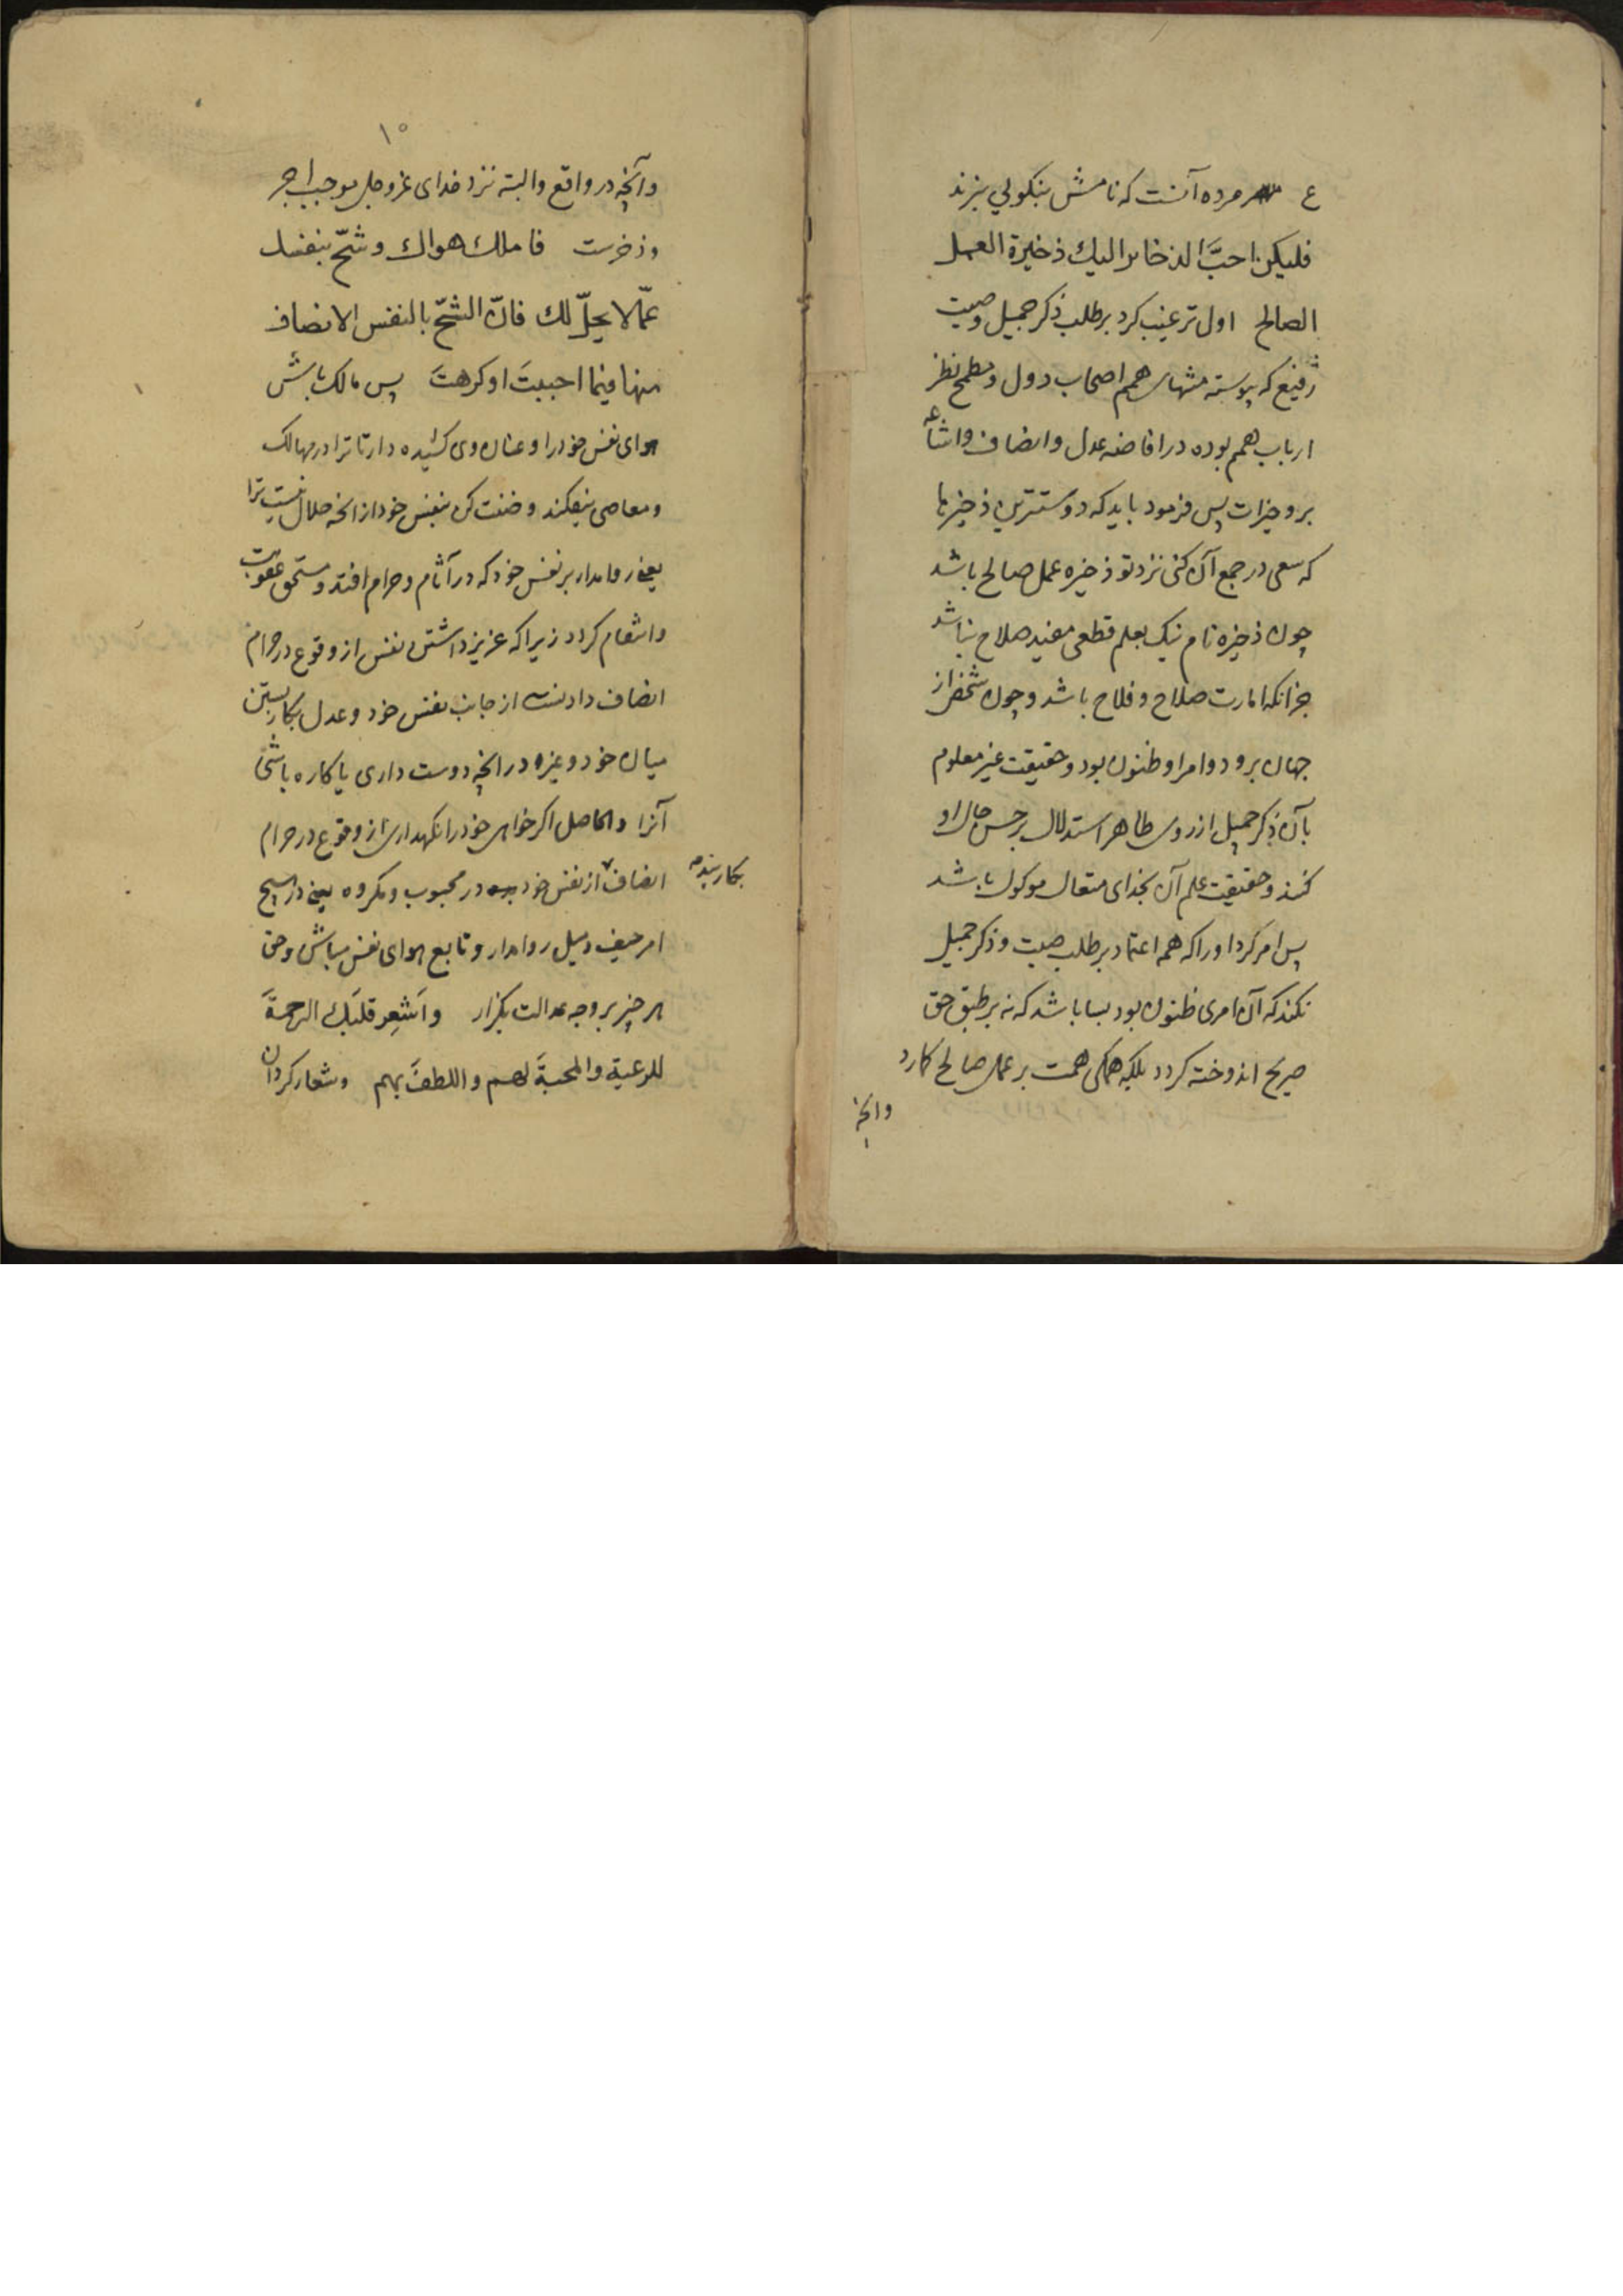 ع مرده آنست که نامش بنکویی نبرند
فلیکن احبَّ الذخائر الیك ذخیرة العمل
الصالح اول ترغیب کرد بر طلب ذکر جمیل وصیت
رفیع که پیوسته منتهای همم اصحاب دول و مطمح نظر
ارباب همم بوده در افاضه عدل وانصاف واشاعه
بر و خیرات پس فرمود باید که دوسترین ذخیرها
که سعی در جمع آن کنی نزد تو ذخیره عمل صالح باشد
چون ذخیره نام نیک بعلم قطعی مفید صلاح نباشد
جز انکه امارت صلاح و فلاح باشد و چون شخص از
جهان برود و امر او ظنون بود و حقیقت غیر معلوم
بآن ذکر جمیل از روی ظاهر استدلال بر حسن حال او
کنند و حقیقت علم آن بخدای متعال موکول باشد
پس امر کرد او را که همه اعتماد بر طلب صیت و ذکر جمیل
نکند که آن امری ظنون بود بسا باشد که نه بر طبق حق
صریح اندوخته کردد بلکه همکی همت بر عمل صالح کمارد
وانچه
۱۰
وآنچه در واقع والبته نزد خدای عزوجل موجب اجر
وذخرست فاملك هواك وشحّ بنفسك
عمّا لا یحلّ لك فانّ الشحّ بالنفس الانصاف
منها فیما احببتَ او کرهتَ پس مالک باش
هوای نفس خود را و عنان وی کشیده دار تا ترا در مهالک
ومعاصی نیفکند و ضنت کن بنفس خود از انچه حلال نیست ترا
یعنی روا مدار بر نفس خود که در آثام و حرام افتد و مستحق عقوبت
وانتقام کردد زیرا که عزیز داشتن نفس از وقوع در حرام
انصاف دادنست از جانب نفس خود و عدل بکار بستن
میان خود و غیره در انچه دوست داری یا کاره باشی
آنرا والحاصل اکر خواهی خود را نکهداری از وقوع در حرام
انصاف از نفس خود در محبوب و مکروه یعنی در هیچ
بکار بند
امر حیف و میل روا مدار و تابع هوای نفس مباش و حق
هر چیز بر وجه عدالت بگزار واَشعِر قلبَك الرحمةَ
للرعیة والمحبةَ لهم واللطفَ بهم وشعار کردان